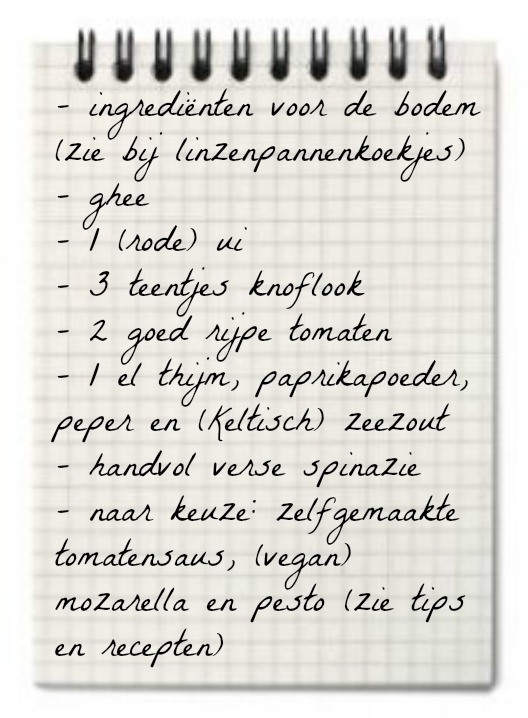 - ingrediënten voor de bodem
(zie bij linzenpannenkoekjes)
- ghee
- 1 (rode) ui
- 3 teentjes knoflook
- 2 goed rijpe tomaten
- 1 el thijm, paprikapoeder,
peper en (Keltisch) zeezout
- handvol verse spinazie
- naar keuze: zelfgemaakte
tomatensaus, (vegan)
mozarella en pesto (zie tips
en recepten)